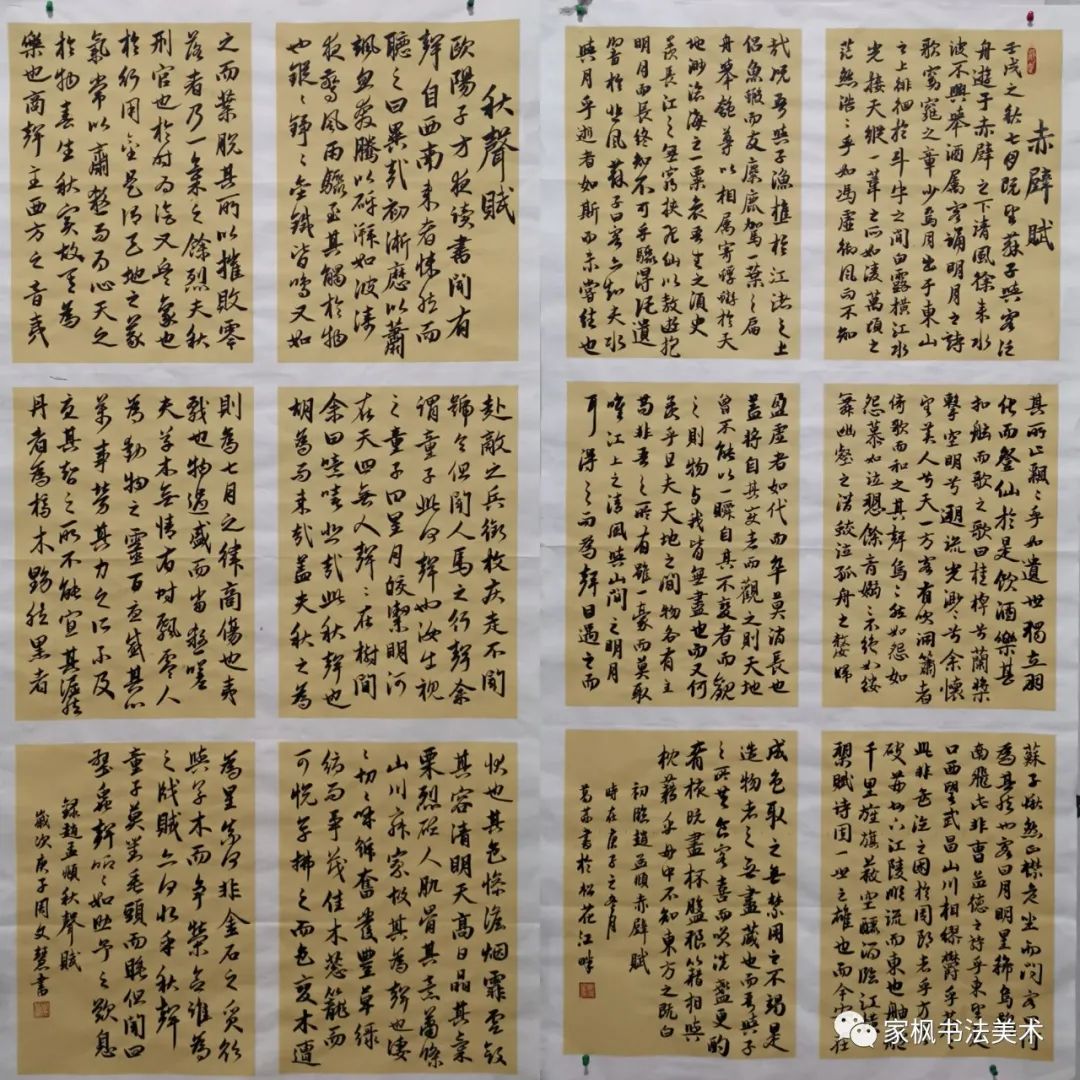 赤壁賦
壬戌之秋七月既望蘇子與客泛
舟遊于赤壁之下清風徐来水
波不興舉酒属客誦明月之詩
歌窈窕之章少焉月出于東山
之上徘徊於斗牛之間白露橫江水
光接天縱一葦之所如淩萬頃之
茫然浩〻乎如馮虛御風而不知
其所止飄〻乎如遺世獨立羽
化而登仙於是飲酒樂甚
扣舷而歌之歌曰桂棹兮蘭槳
擊空明兮遡流光渺〻兮余懷
望美人兮天一方客有吹洞簫者
倚歌而和之其聲烏〻然如怨如
怨慕如泣愬餘音嫋〻不絕如縷
舞幽壑之潛蛟泣孤舟之嫠婦
蘇子愀然正襟危坐而問客曰何
為其然也客曰月明星稀烏鵲
南飛此非曹孟德之詩乎東望夏
口西望武昌山川相繆鬱乎蒼〻
此非孟德之困於周郎者乎方其
破荊州下江陵順流而東也舳艫
千里旌旗蔽空釃酒臨江橫
槊賦詩固一世之雄也而今安在
哉况吾與子漁樵於江渚之上
侶魚蝦而友麋鹿駕一葉之扁
舟舉匏尊以相属寄蜉蝣於天
地渺滄海之一粟哀吾生之須臾
羨長江之無窮挟飛仙以敖遊抱
明月而長終知不可乎驟得託遺
響於悲風蘇子曰客亦知夫水
與月乎逝者如斯而未嘗往也
盈虛者如代而卒莫消長也
蓋將自其变者而觀之則天地
曾不能以一瞬自其不變者而觀
之則物与我皆無盡也而又何
羨乎且夫天地之間物各有主
苟非吾之所有雖一豪而莫取
唯江上之清風與山間之明月
耳得之而為聲目遇之而
成色取之無禁用之不竭是
造物者之無盡藏也而吾與子
之所共食客喜而咲洗盞更酌
肴核既盡杯盤狼籍相與
枕藉乎舟中不知東方之既白
初臨趙孟頫赤壁賦
時在庚子之冬月
書於松花江畔
秋聲賦
歐陽子方夜讀書聞有
聲自西南来者悚然而
聽之曰異哉初淅瀝以蕭
颯忽奔騰以砰湃如波濤
夜驚風雨驟至其觸於物
也鏦〻錚〻金鐵皆鳴又如
赴敵之兵銜枚疾走不聞
號令但聞人馬之行聲余
謂童子此何聲也汝出視
之童子曰星月皎潔明河
在天四無人聲〻在樹間
余曰噫嘻悲哉此秋聲也
胡為而来哉蓋夫秋之為
狀也其色慘澹烟霏雲斂
其容清明天高日晶其氣
栗烈砭人肌骨其意蕭條
山川寂寥故其為聲也淒
〻切〻呼號奮發豐草綠
縟而爭茂佳木蔥籠而
可悅草拂之而色变木遭
之而葉脫其所以摧敗零
落者乃一氣之餘烈夫秋
刑官也於时為陰又兵象也
於行用金是謂天地之義
氣常以肅殺而為心天之
於物春生秋實故其為
樂也商聲主西方之音夷
則為七月之律商傷也夷
戮也物過盛而當殺嗟
夫草木無情有时飄零人
為動物之靈百憂感其心
萬事勞其力之所不及
憂其智之所不能宜其渥然
丹者為槁木黟然黑者
為星奈何非金石之質欲
與草木而爭榮念誰為
之戕賊亦何恨乎秋聲
童子莫對垂頭而睡但聞四
壁蟲聲唧〻如助余之歎息
錄趙孟頫秋聲賦
歲次庚子周文慧書
家枫书法美术